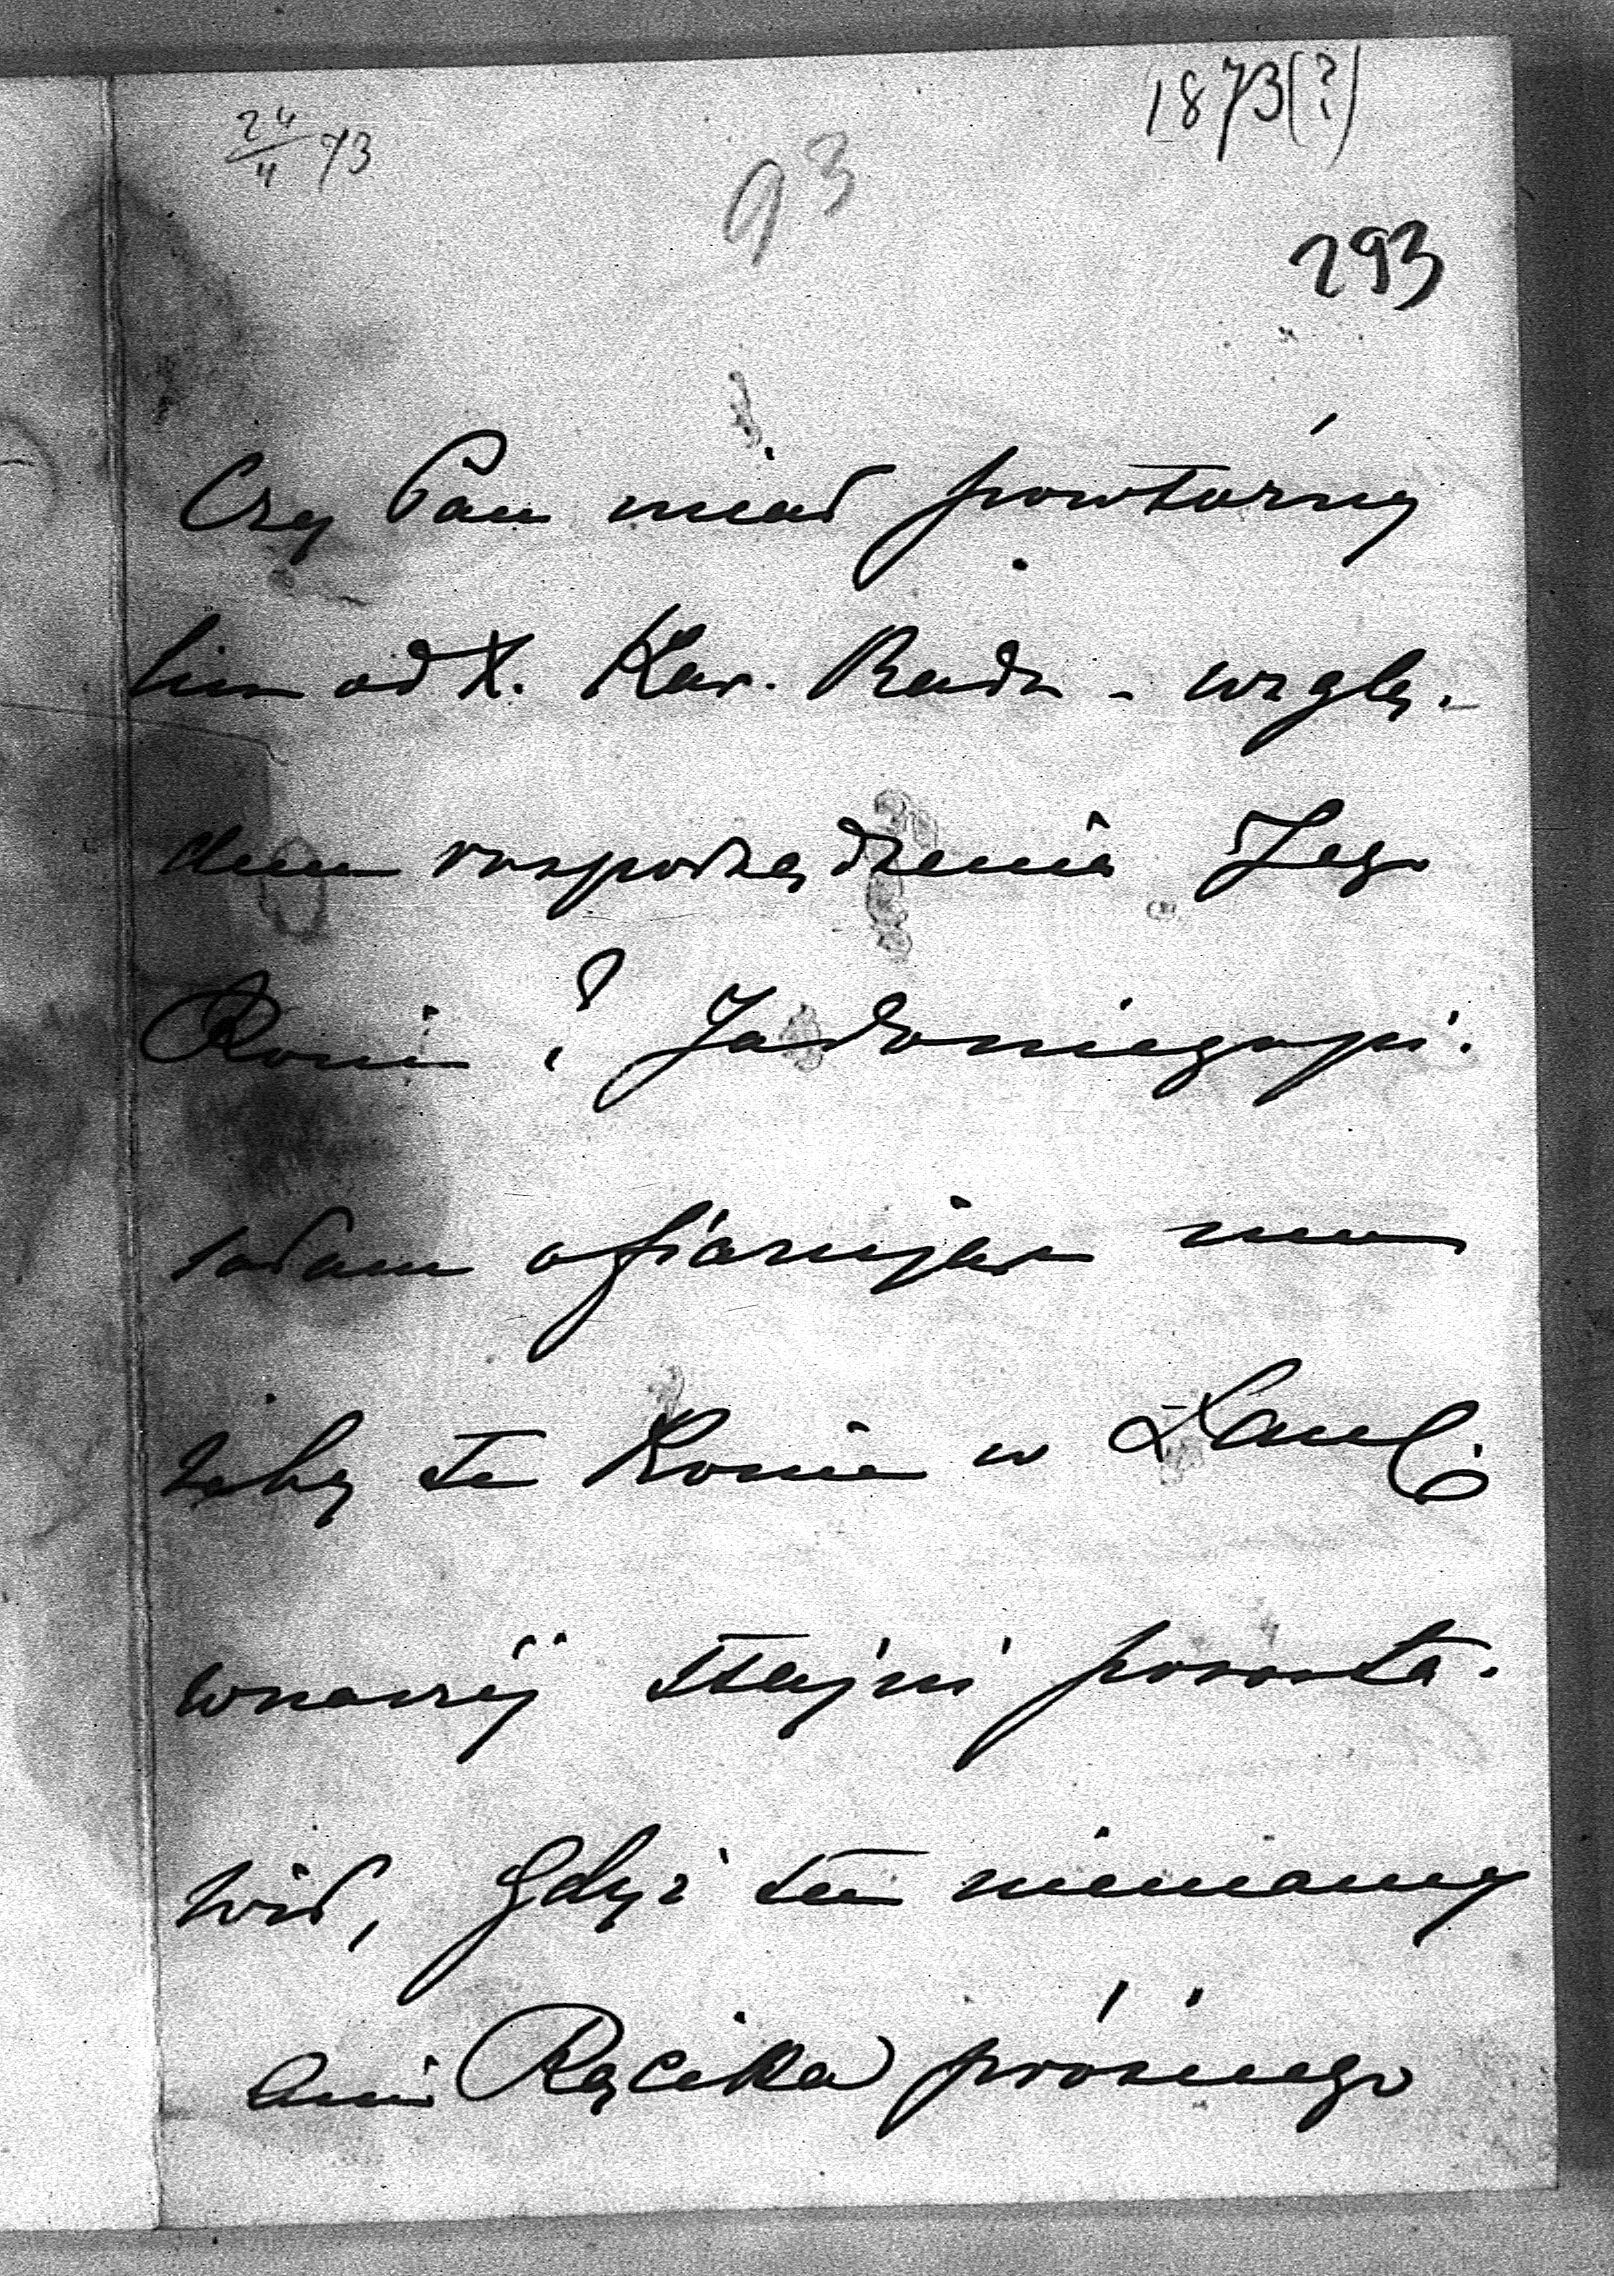 24/4 73
1873(?)
93
293
Czy Pan miał powtórny
list od X. Kar. Radz. wzglę-
dem rosporządzenia Jego
Koni? Ja do niego pi-
sałam ofiarując mu
żeby te Konie w Łań.
wnaszéj stajni posta-
wił, Gdyż tu niemamy
ani Kącika próżnego